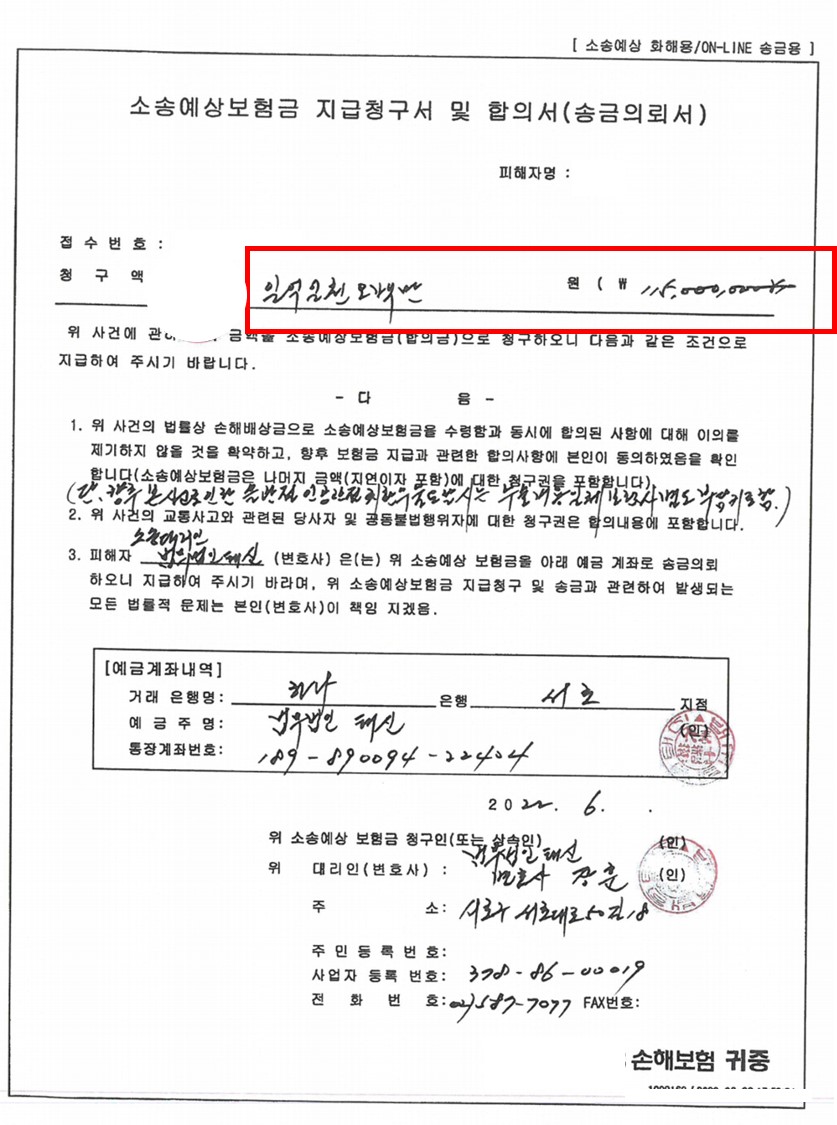 [ 소송예상 화해용/ON-LINE 송금용 ]
소송예상보험금 지급청구서 및 합의서(송금의뢰서)
피해자명 :
접 수 번 호 :
청 구 액 일억일천오백만 원 ( ₩ 115,000,000
위 사건에 관 금액을 소송예상보험금(합의금)으로 청구하오니 다음과 같은 조건으로
지급하여 주시기 바랍니다.
- 다 음 -
1. 위 사건의 법률상 손해배상금으로 소송예상보험금을 수령함과 동시에 합의된 사항에 대해 이의를
제기하지 않을 것을 확약하고, 향후 보험금 지급과 관련한 합의사항에 본인이 동의하였음을 확인
합니다(소송예상보험금은 나머지 금액(지연이자 포함)에 대한 청구권을 포함합니다)
(단, 향후
2. 위 사건의 교통사고와 관련된 당사자 및 공동불법행위자에 대한 청구권은 합의내용에 포함합니다.
소송대리인
3. 피해자 법무법인 태신 (변호사) 은(는) 위 소송예상 보험금을 아래 예금 계좌로 송금의뢰
하오니 지급하여 주시기 바라며, 위 소송예상보험금 지급청구 및 송금과 관련하여 발생되는
모든 법률적 문제는 본인(변호사)이 책임 지겠음.
[예금계좌내역]
거래 은행명: 하나 은행 서초 지점
예 금 주 명: 법무법인 태신 (인)
통장계좌번호: 189-890094-22404
2022. 6. .
위 소송예상 보험금 청구인(또는 상속인) (인)
법무법인 태신
위 대리인(변호사) : 변호사 장훈 (인)
주 소: 서초구 서초대로50길 18
주 민 등 록 번 호:
사업자 등록 번호: 378-86-00019
전 화 번 호: 02)587-7077 FAX번호:
손해보험 귀중